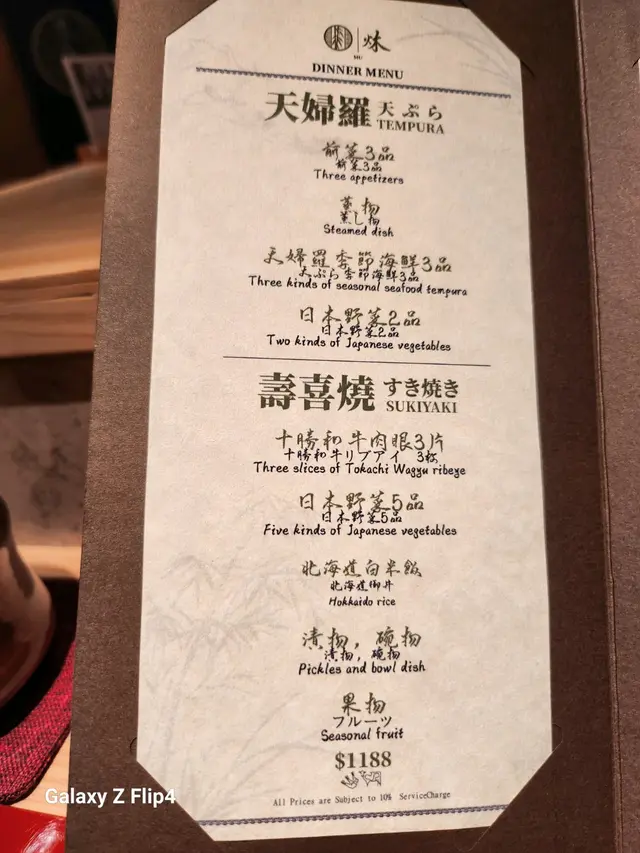 味
MU
DINNER MENU
天婦羅 天ぷら
TEMPURA
前菜3品
前菜3品
Three appetizers
蒸物
蒸し物
Steamed dish
天婦羅季節海鮮3品
天ぷら季節海鮮3品
Three kinds of seasonal seafood tempura
日本野菜2品
日本野菜2品
Two kinds of Japanese vegetables
壽喜燒 すき焼き
SUKIYAKI
十勝和牛肉眼3片
十勝和牛リブアイ 3枚
Three slices of Tokachi Wagyu ribeye
日本野菜5品
日本野菜5品
Five kinds of Japanese vegetables
北海道白米飯
北海道御丼
Hokkaido rice
漬物，碗物
漬物，碗物
Pickles and bowl dish
果物
フルーツ
Seasonal fruit
$1188
All Prices are Subject to 10% ServiceCharge
Galaxy Z Flip4